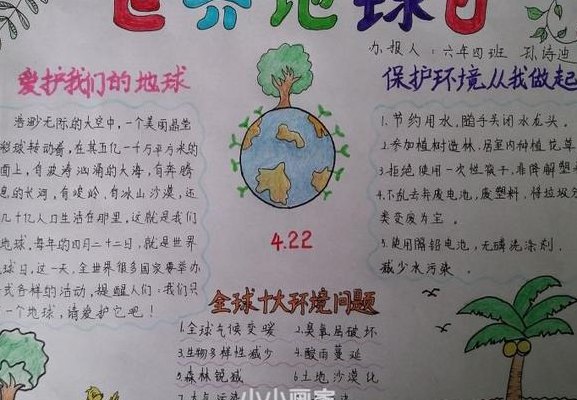 世界地球日
办报人：六年四班 孙诗迪
爱护我们的地球
浩瀚无际的太空中，一个美丽晶莹
彩球转动着，在其五亿一千万平方米的
面上，有波涛汹涌的大海，有奔腾
息的长河，有峻岭，有冰山沙漠，还
几十亿人口生活在那里，这就是我们
地球，每年的四月二十二日，就是世界
球日，这一天，全世界很多国家要举办
式各样的活动，提醒人们：我们只
一个地球，请爱护它吧！
4.22
保护环境从我做起
1.节约用水，随手关闭水龙头。
2.参加植树造林，居室内种植花草
3.拒绝使用一次性筷子，靠降解塑料
4.不乱丢弃废电池，废塑料，将垃圾分
类变废为宝。
5.使用隔铅电池，无磷洗涤剂，
减少水污染。
全球十大环境问题
1.全球气候变暖 2.臭氧层破坏
3.生物多样性减少 4.酸雨蔓延
5.森林锐减 6.土地沙漠化
7.大气污染
小小画家